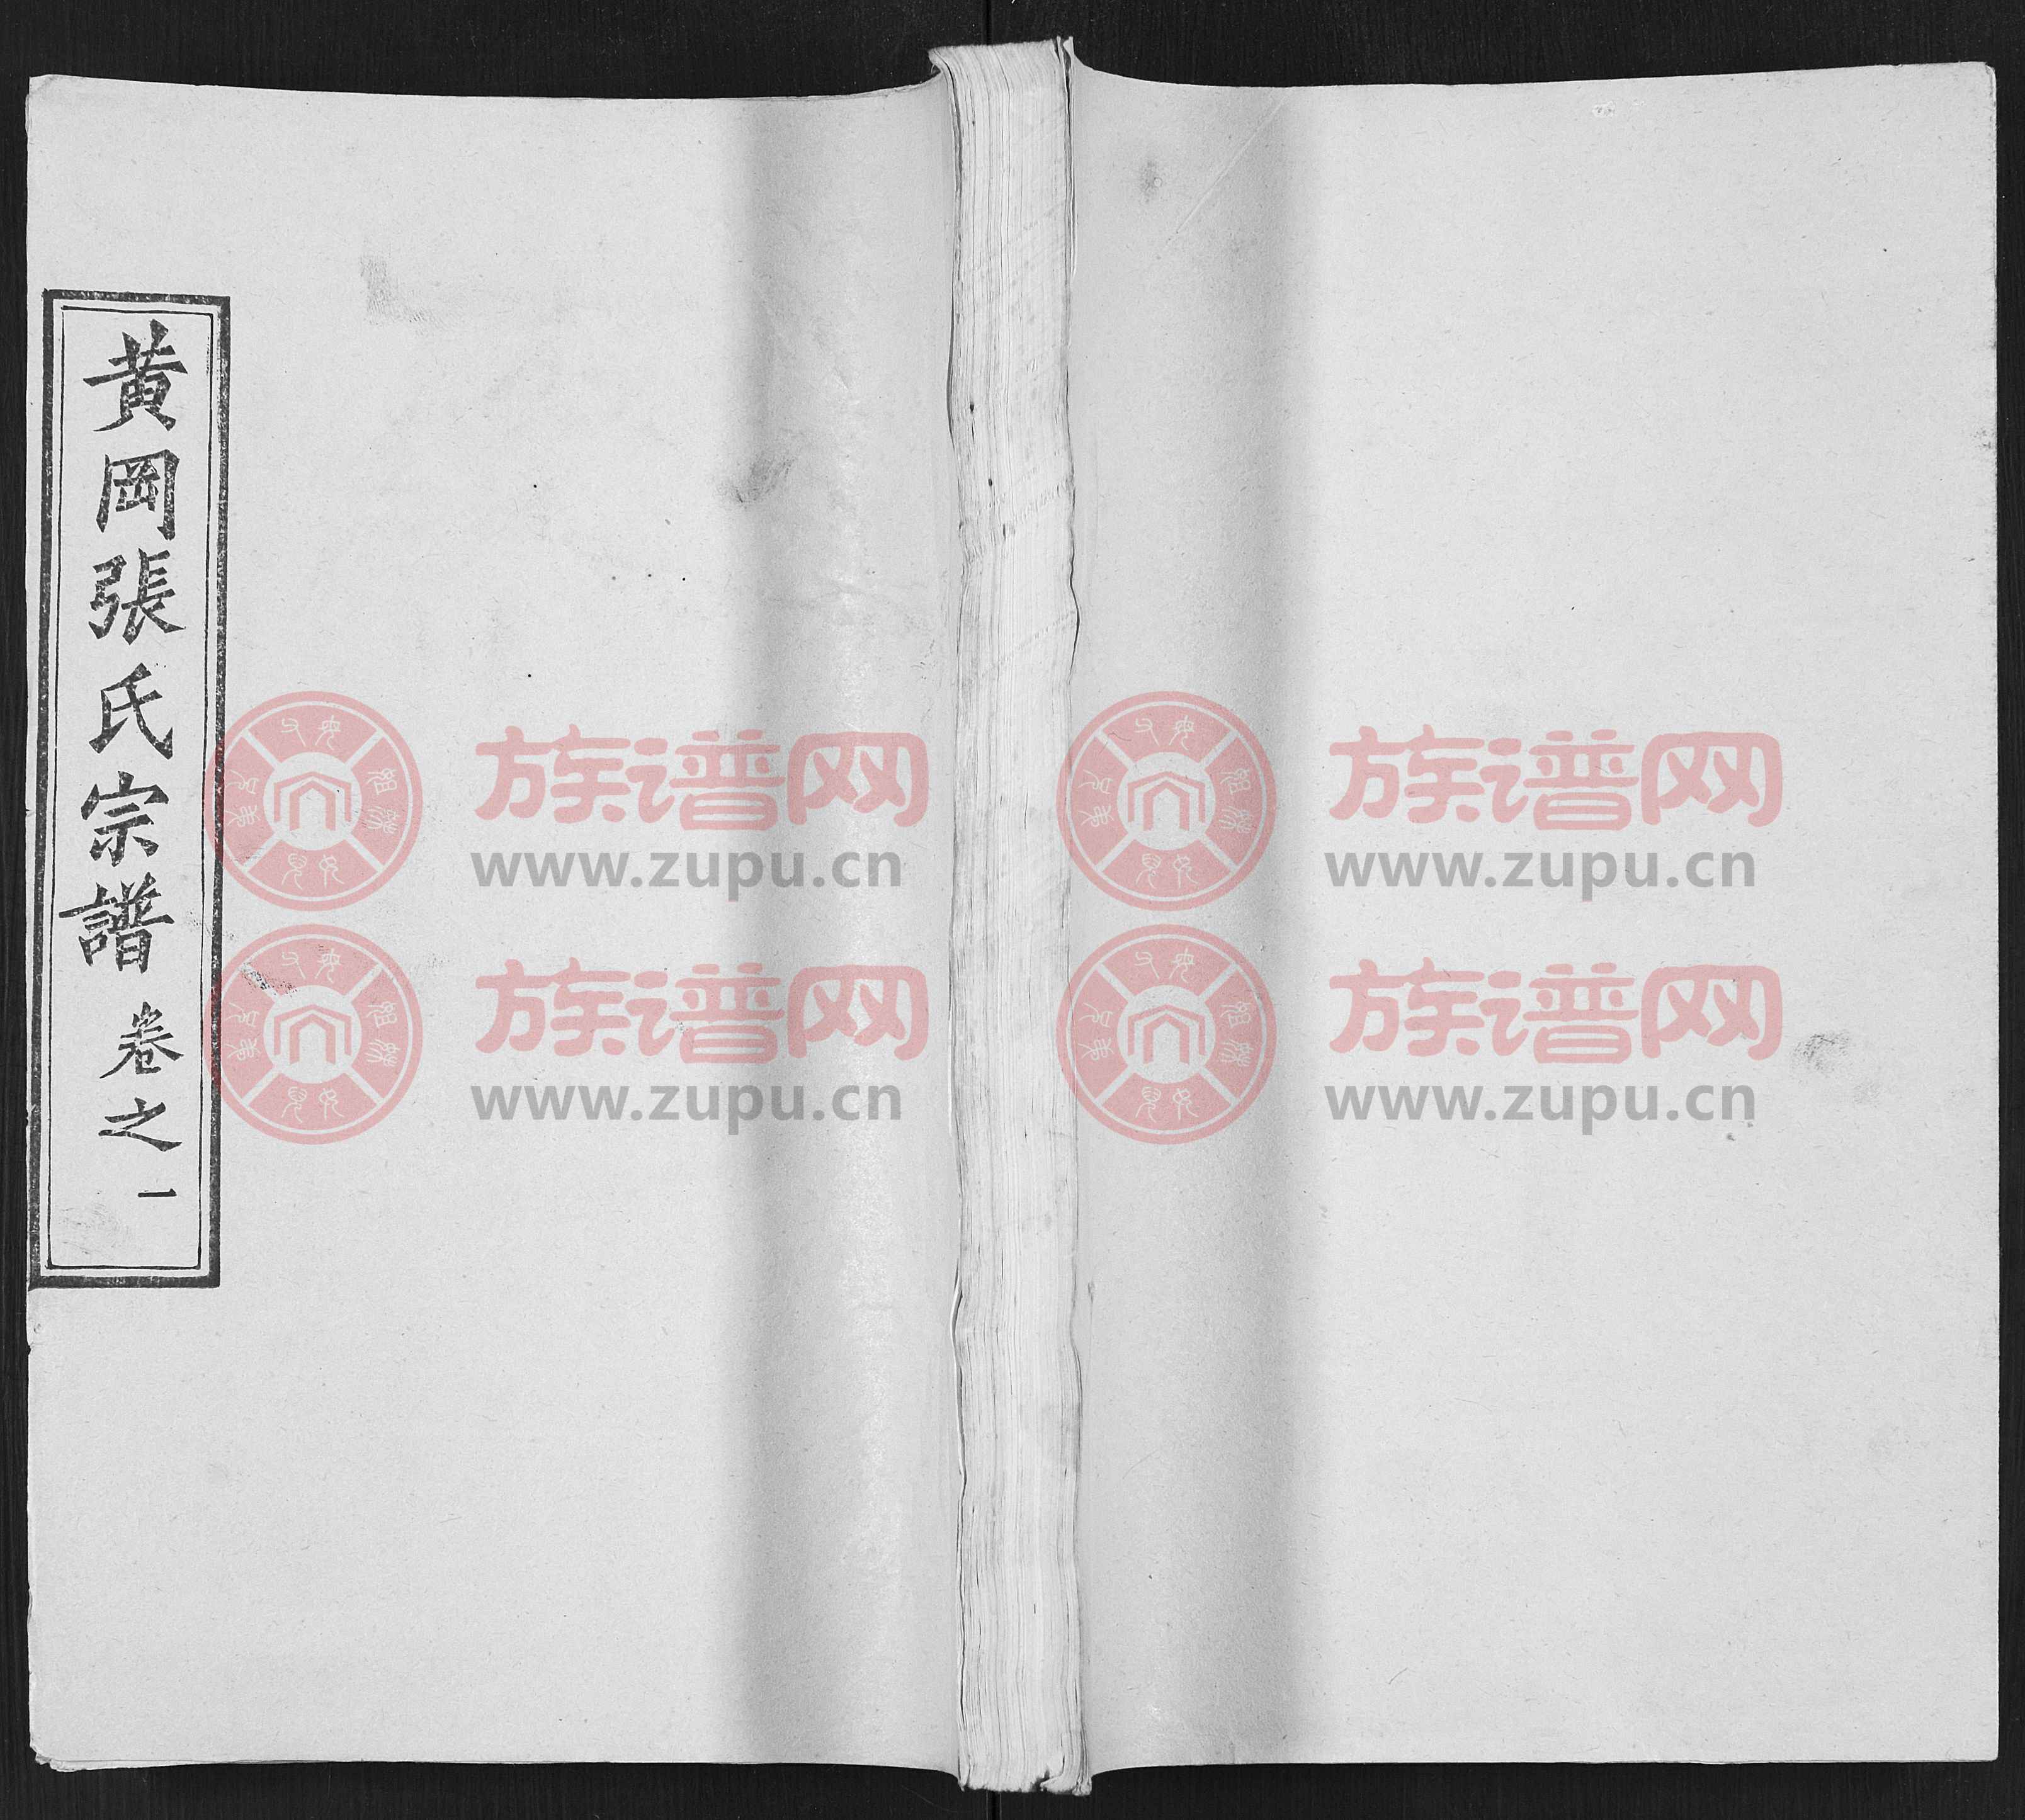 黄岡張氏宗譜 卷之一
族谱网
www.zupu.cn
族谱网
www.zupu.cn
族谱网
www.zupu.cn
族谱网
www.zupu.cn